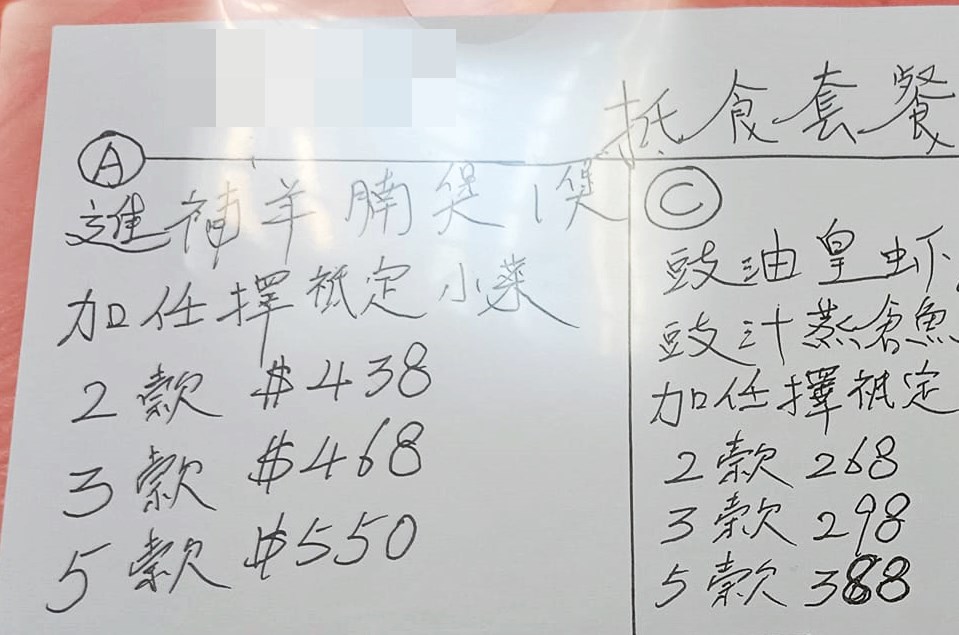 抵食套餐
A
進補羊腩煲1煲
加任擇祗定小菜
2款 $438
3款 $468
5款 $550
C
豉油皇虾
豉汁蒸倉魚
加任擇祗定
2款 268
3款 298
5款 388